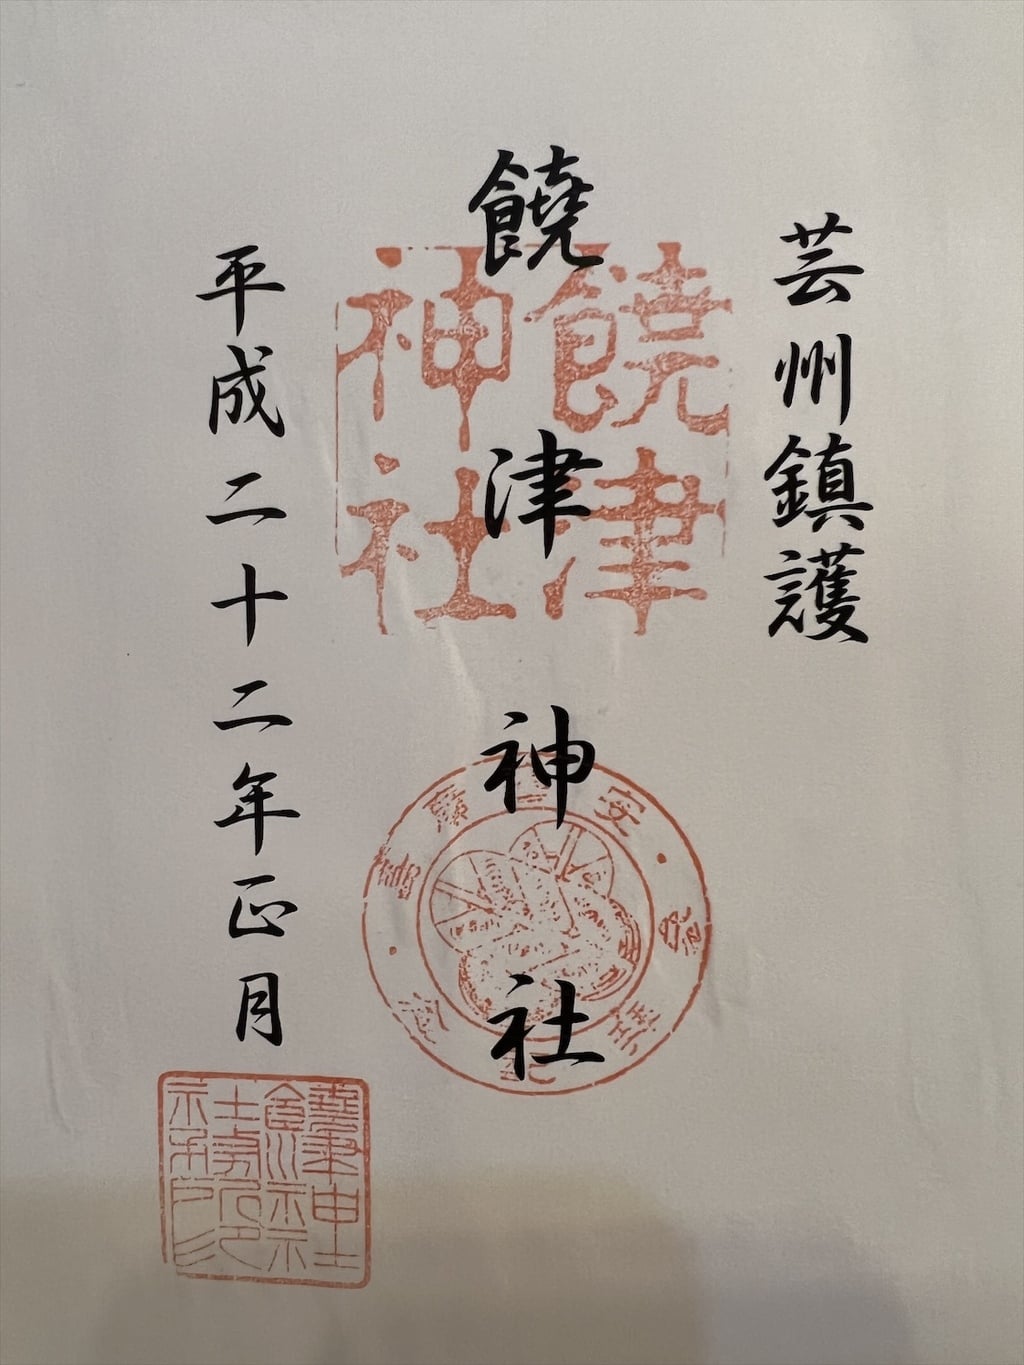 芸州鎮護
饒津神社
饒津
神社
平成二十二年正月